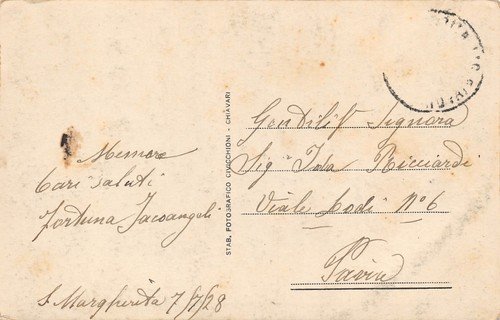 Memore
Cari saluti
Fortuna Jacoangeli
S. Margherita 7/7/28
STAB. FOTOGRAFICO CIVICCHIONI - CHIAVARI
Gentilis Signora
Sig ra Ida Ricciardi
Viale Lodi N° 6
Pavia